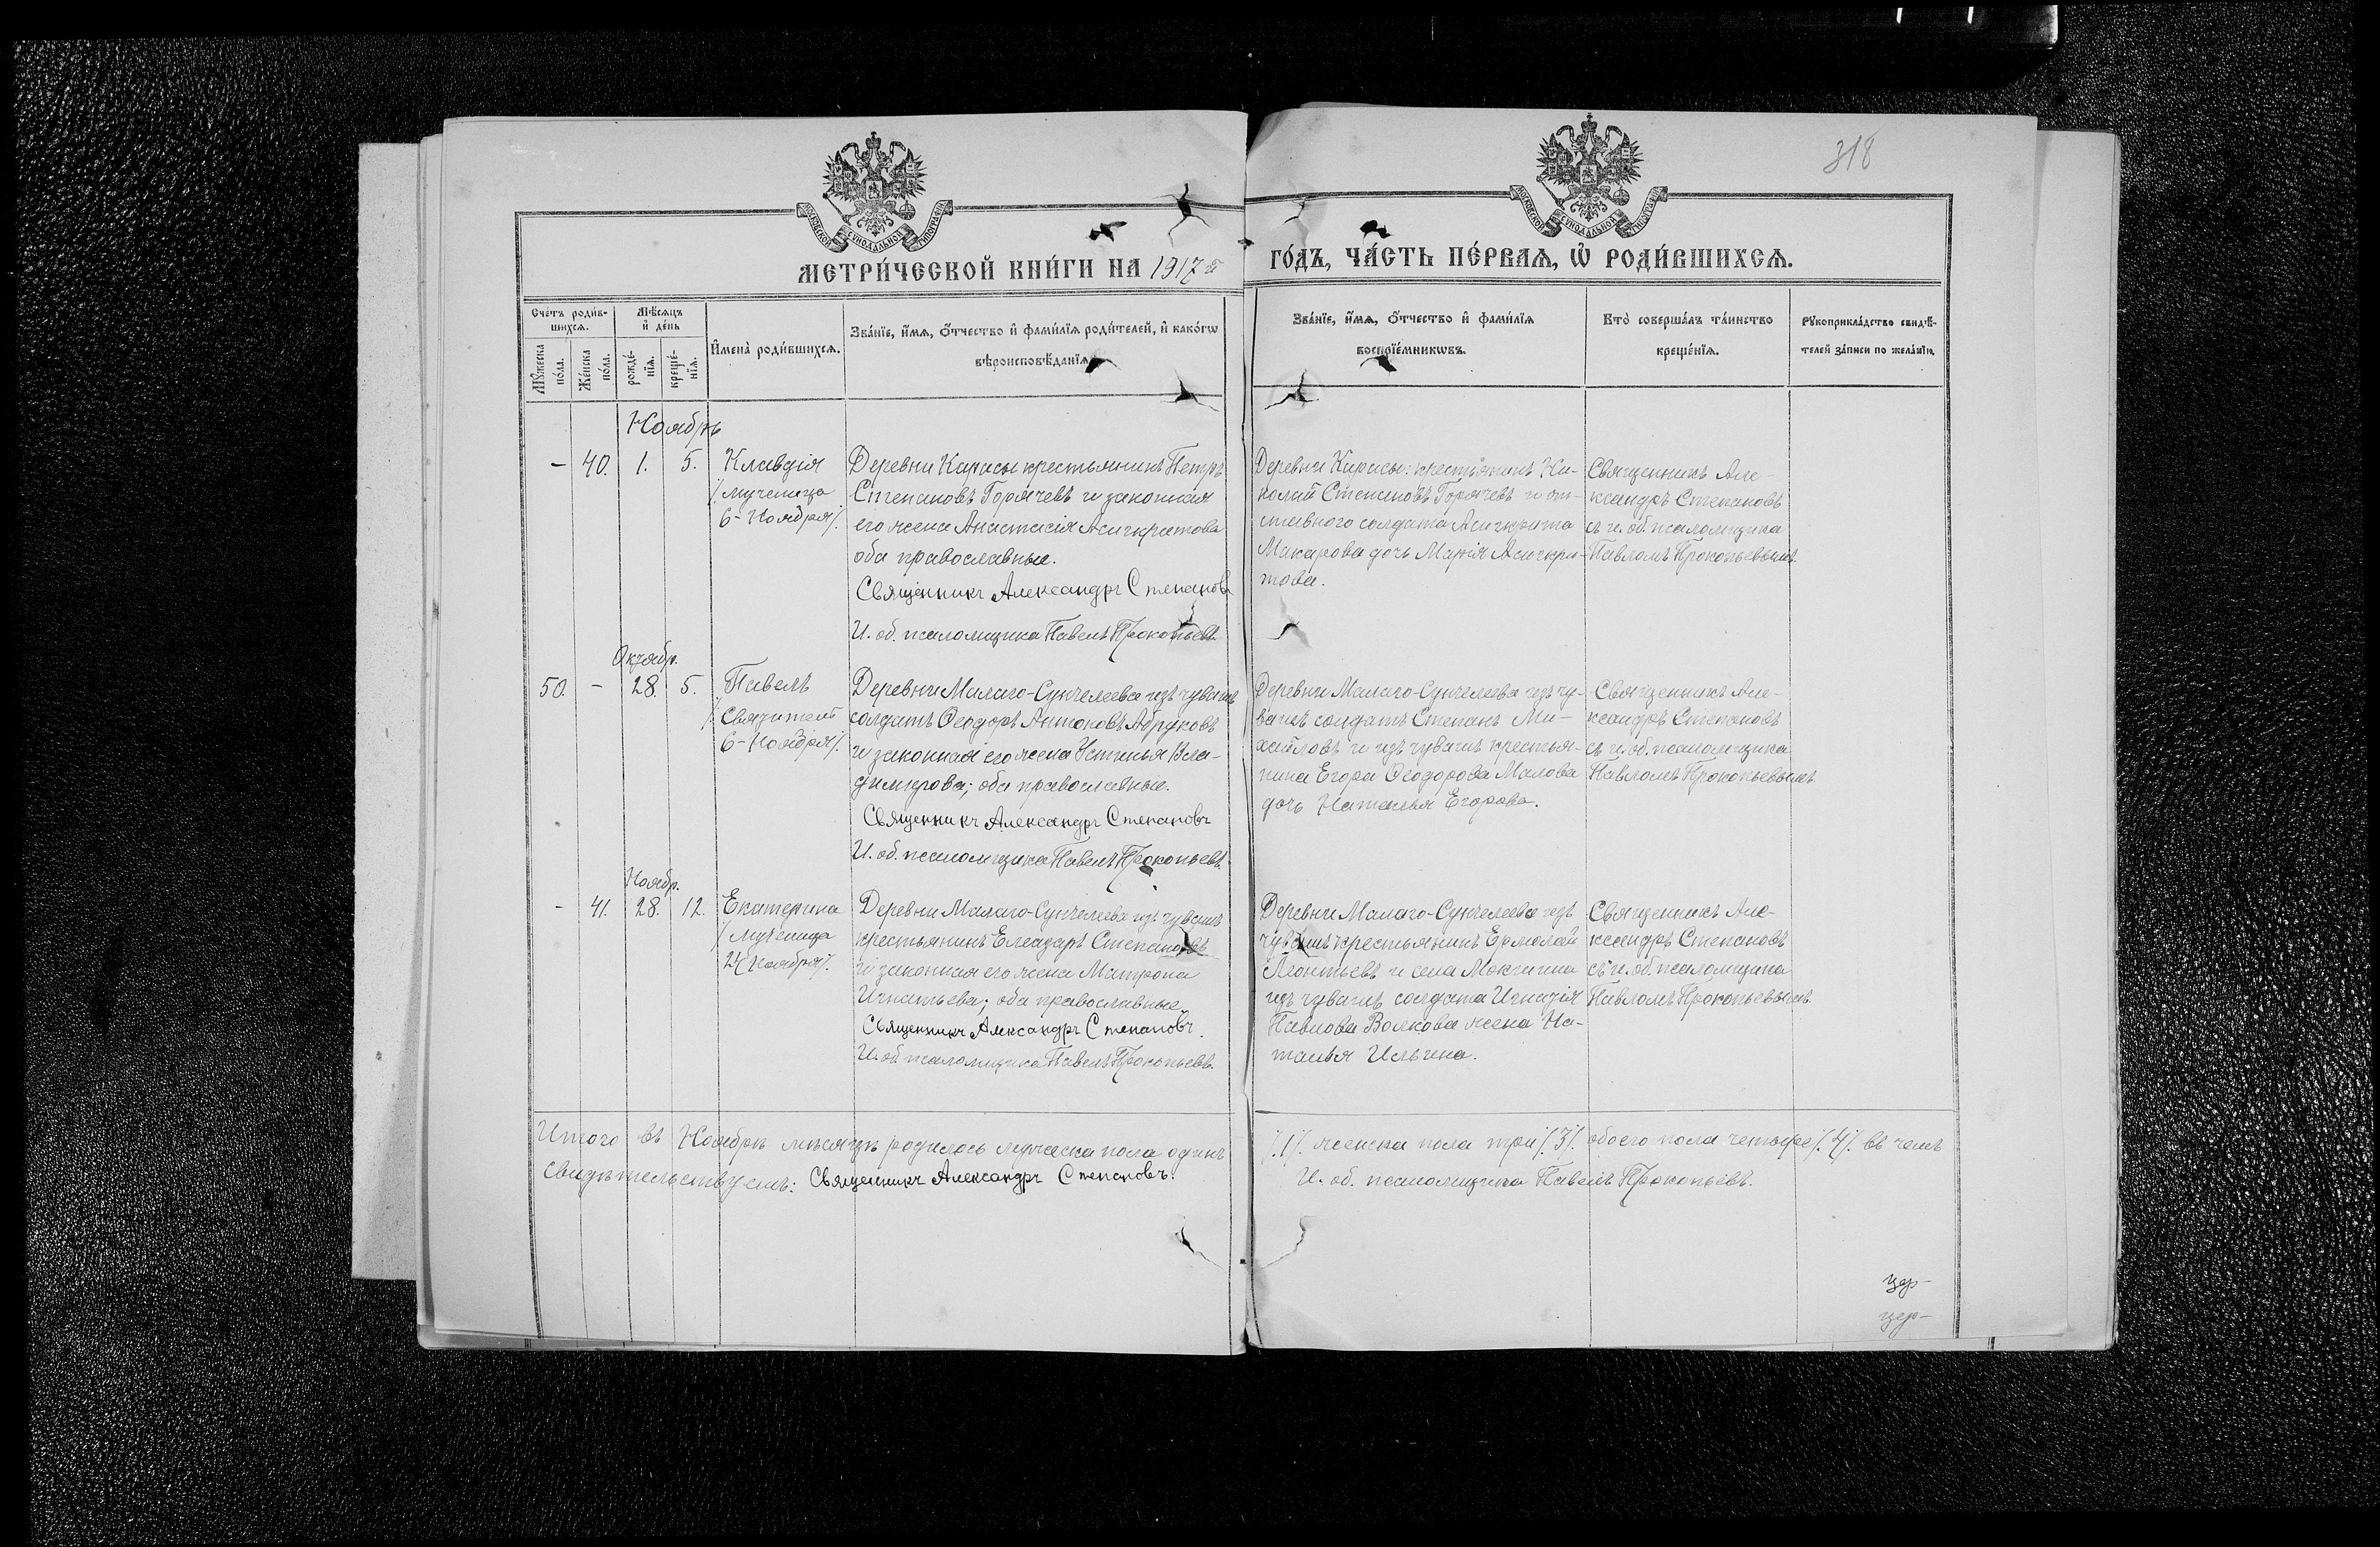 318
МОСКОВСКОЙ СѴНОДАЛЬНОЙ ТИПОГРАФІИ
МОСКОВСКОЙ СѴНОДАЛЬНОЙ ТИПОГРАФІИ
МЕТРИ́ЧЕСКОЙ КНИ́ГИ НА 1917й
ГО́ДЪ, ЧА́СТЬ ПЕ́РВАѦ, Ѡ҆ РОДИ́ВШИХСѦ.
Сче́тъ роди́в-
шихсѧ.
Мꙋ́жеска
по́ла.
Же́нска
по́ла.
Мѣ́сѧцъ
и҆ де́нь
рожде́-
нїѧ.
креще́-
нїѧ.
И҆мена̀ роди́вшихсѧ.
Зва́нїе, и҆́мѧ, ѻ҆́тчество и҆ фами́лїѧ роди́телей, и҆ како́гѡ
вѣроисповѣ́данїѧ.
Зва́нїе, и҆́мѧ, ѻ҆́тчество и҆ фами́лїѧ
воспрїе́мникѡвъ.
Кто̀ соверша́лъ та́инство
креще́нїѧ.
Рꙋкоприкла́дство свидѣ́-
телей за́писи по жела́нїю.
Ноябрь
- 40. 1. 5. Клавдія
/ мученица
6 - Ноября/.
Деревни Кирисы крестьянинъ Петръ
Степановъ Горячевъ и законная
его жена Анастасія Асигкритова
оба православные.
Священникъ Александръ Степановъ
И. об. псаломщика Павелъ Прокопьевъ
Деревни Кирисы: крестьянинъ Ни-
колай Степановъ Горячевъ и от-
ставного солдата Асигкрита
Макарова дочь Марія Асигкри-
това.
Священникъ Але-
ксандръ Степановъ
съ и. об. псаломщика
Павломъ Прокопьевымъ.
Октябр.
50. - 28. 5. Павелъ
/. Святитель
6 - Ноября/.
Деревни Малаго-Сунчелеева изъ чувашъ
солдатъ Ѳеодоръ Антоновъ Абруковъ
и законная его жена Устинья Вла-
димирова; оба православные.
Священникъ Александръ Степановъ
И. об. псаломщика Павелъ Прокопьевъ.
Деревни Малаго-Сунчелеева изъ чу-
вашъ солдатъ Степанъ Ми-
хайловъ и изъ чувашъ крестья-
нина Егора Ѳеодорова Малова
дочь Наталья Егорова.
Священникъ Але-
ксандръ Степановъ
съ и. об. псаломщика
Павломъ Прокопьевымъ.
Ноябр.
- 41. 28. 12. Екатерина
/ мученица
24 Ноября/.
Деревни Малаго-Сунчелеева изъ чувашъ
крестьянинъ Елеазаръ Степановъ
и законная его жена Матрона
Игнатьева; оба православные.
Священникъ Александръ Степановъ.
И. об. псаломщика Павелъ Прокопьевъ.
Деревни Малаго-Сунчелеева изъ
чувашъ крестьянинъ Ермолай
Леонтьевъ и села Мокшина
изъ чувашъ солдата Игнатія
Павлова Волкова жена На-
талья Ильина.
Священникъ Але-
ксандръ Степановъ
съ и. об. псаломщика
Павломъ Прокопьевымъ.
Итого въ Ноябрѣ мѣсяцѣ родилось мужеска пола одинъ
/.1/. женска пола три /.3/. обоего пола четыре /.4/. въ чемъ
свидѣтельствуемъ: Священникъ Александръ Степановъ.
И. об. псаломщика Павелъ Прокопьевъ.